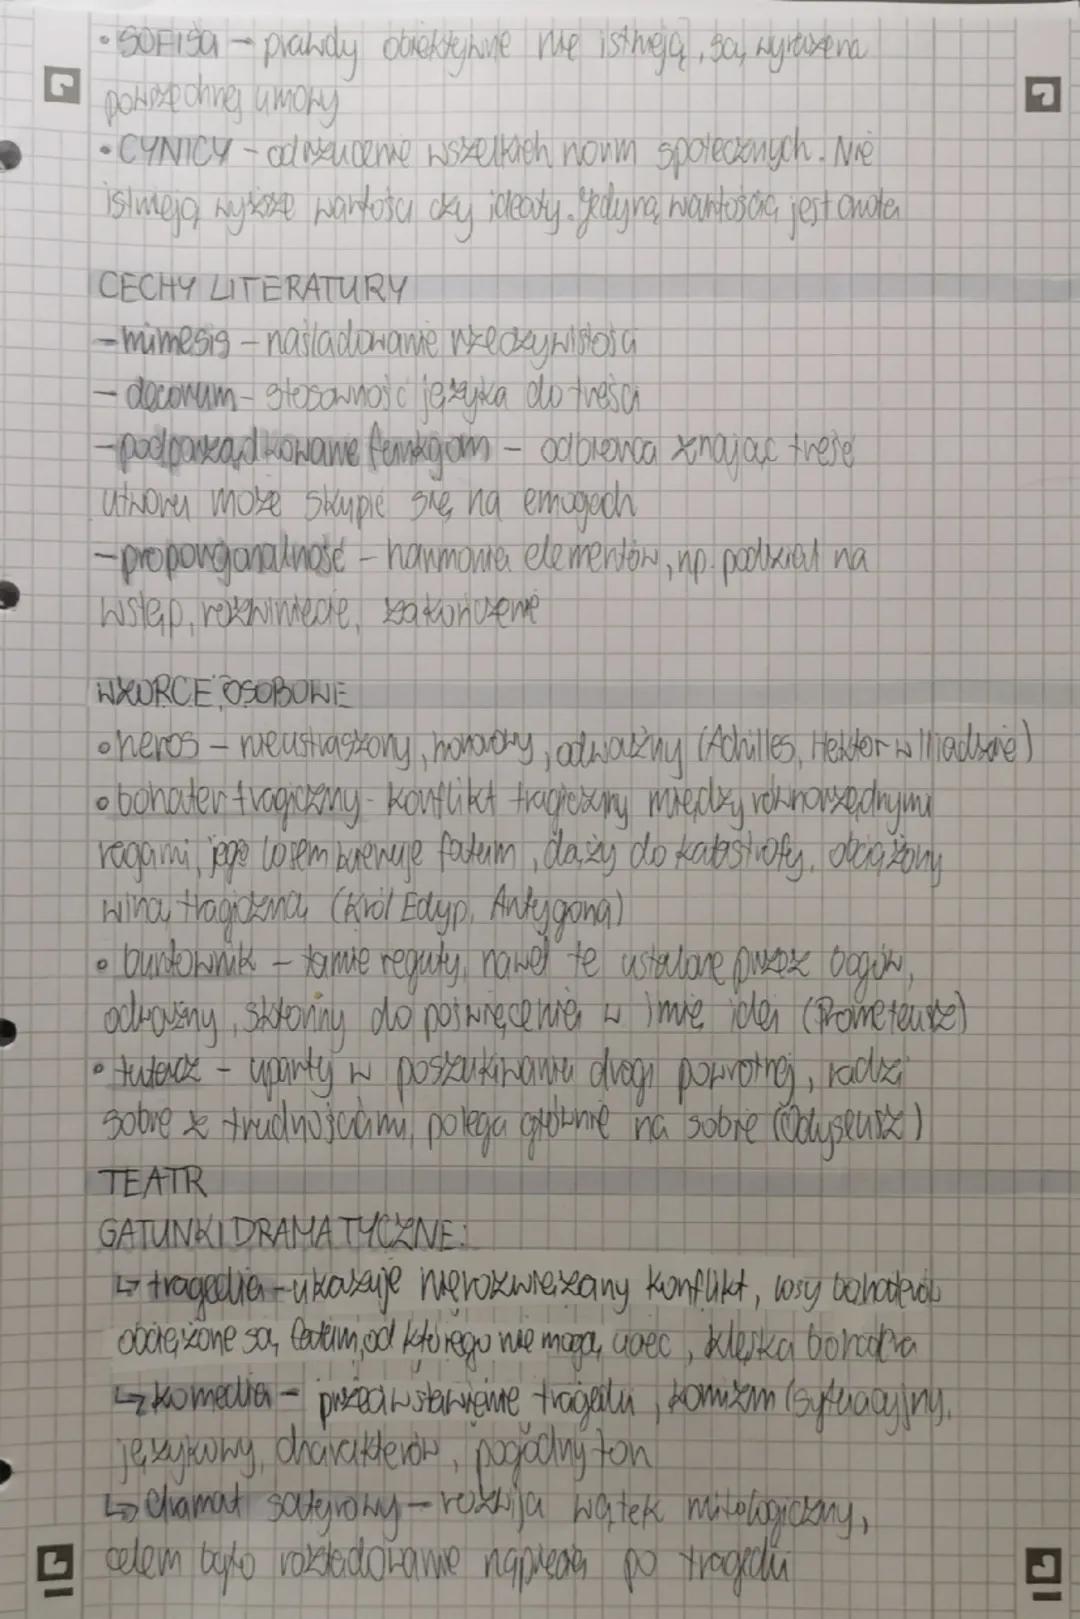 • SOFIŚCI → prawdy obiektywne nie istnieją, są wyrażeną
powszechnej umowy
• CYNICY – odrzucenie wszelkich norm społecznych. Nie
istnieją wyższe wartości czy ideały. Jedyną wartością jest cnota
CECHY LITERATURY
– mimesis – naśladowanie rzeczywistości
– decorum – stosowność języka do treści
– podporządkowanie funkcjom – odbiorca znając treść
utworu może skupić się na emocjach
– proporcjonalność – harmonia elementów, np. podział na
wstęp, rozwinięcie, zakończenie
WZORCE OSOBOWE
• heros – nieustraszony, honorowy, odważny (Achilles, Hektor w Iliadzie)
• bohater tragiczny - konflikt tragiczny między równorzędnymi
racjami, jego losem kieruje fatum, dąży do katastrofy, obciążony
winą tragiczną (Król Edyp, Antygona)
• buntownik – łamie reguły, nawet te ustalone przez bogów,
odważny, skłonny do poświęcenia w imię idei (Prometeusz)
• tułacz – uparty w poszukiwaniu drogi powrotnej, radzi
sobie z trudnościami, polega głównie na sobie (Odyseusz)
TEATR
GATUNKI DRAMATYCZNE:
↳ tragedia – ukazuje nierozwiązany konflikt, losy bohaterów
obciążone są fatum, od którego nie mogą uciec, klęska bohatera
↳ komedia – przeciwstawienie tragedii, komizm (sytuacyjny,
językowy, charakterów, pogodny ton
↳ dramat satyrowy – rozwija wątek mitologiczny,
celem było rozładowanie napięcia po tragedii